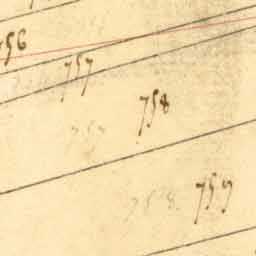 756
757
758
757
759
758